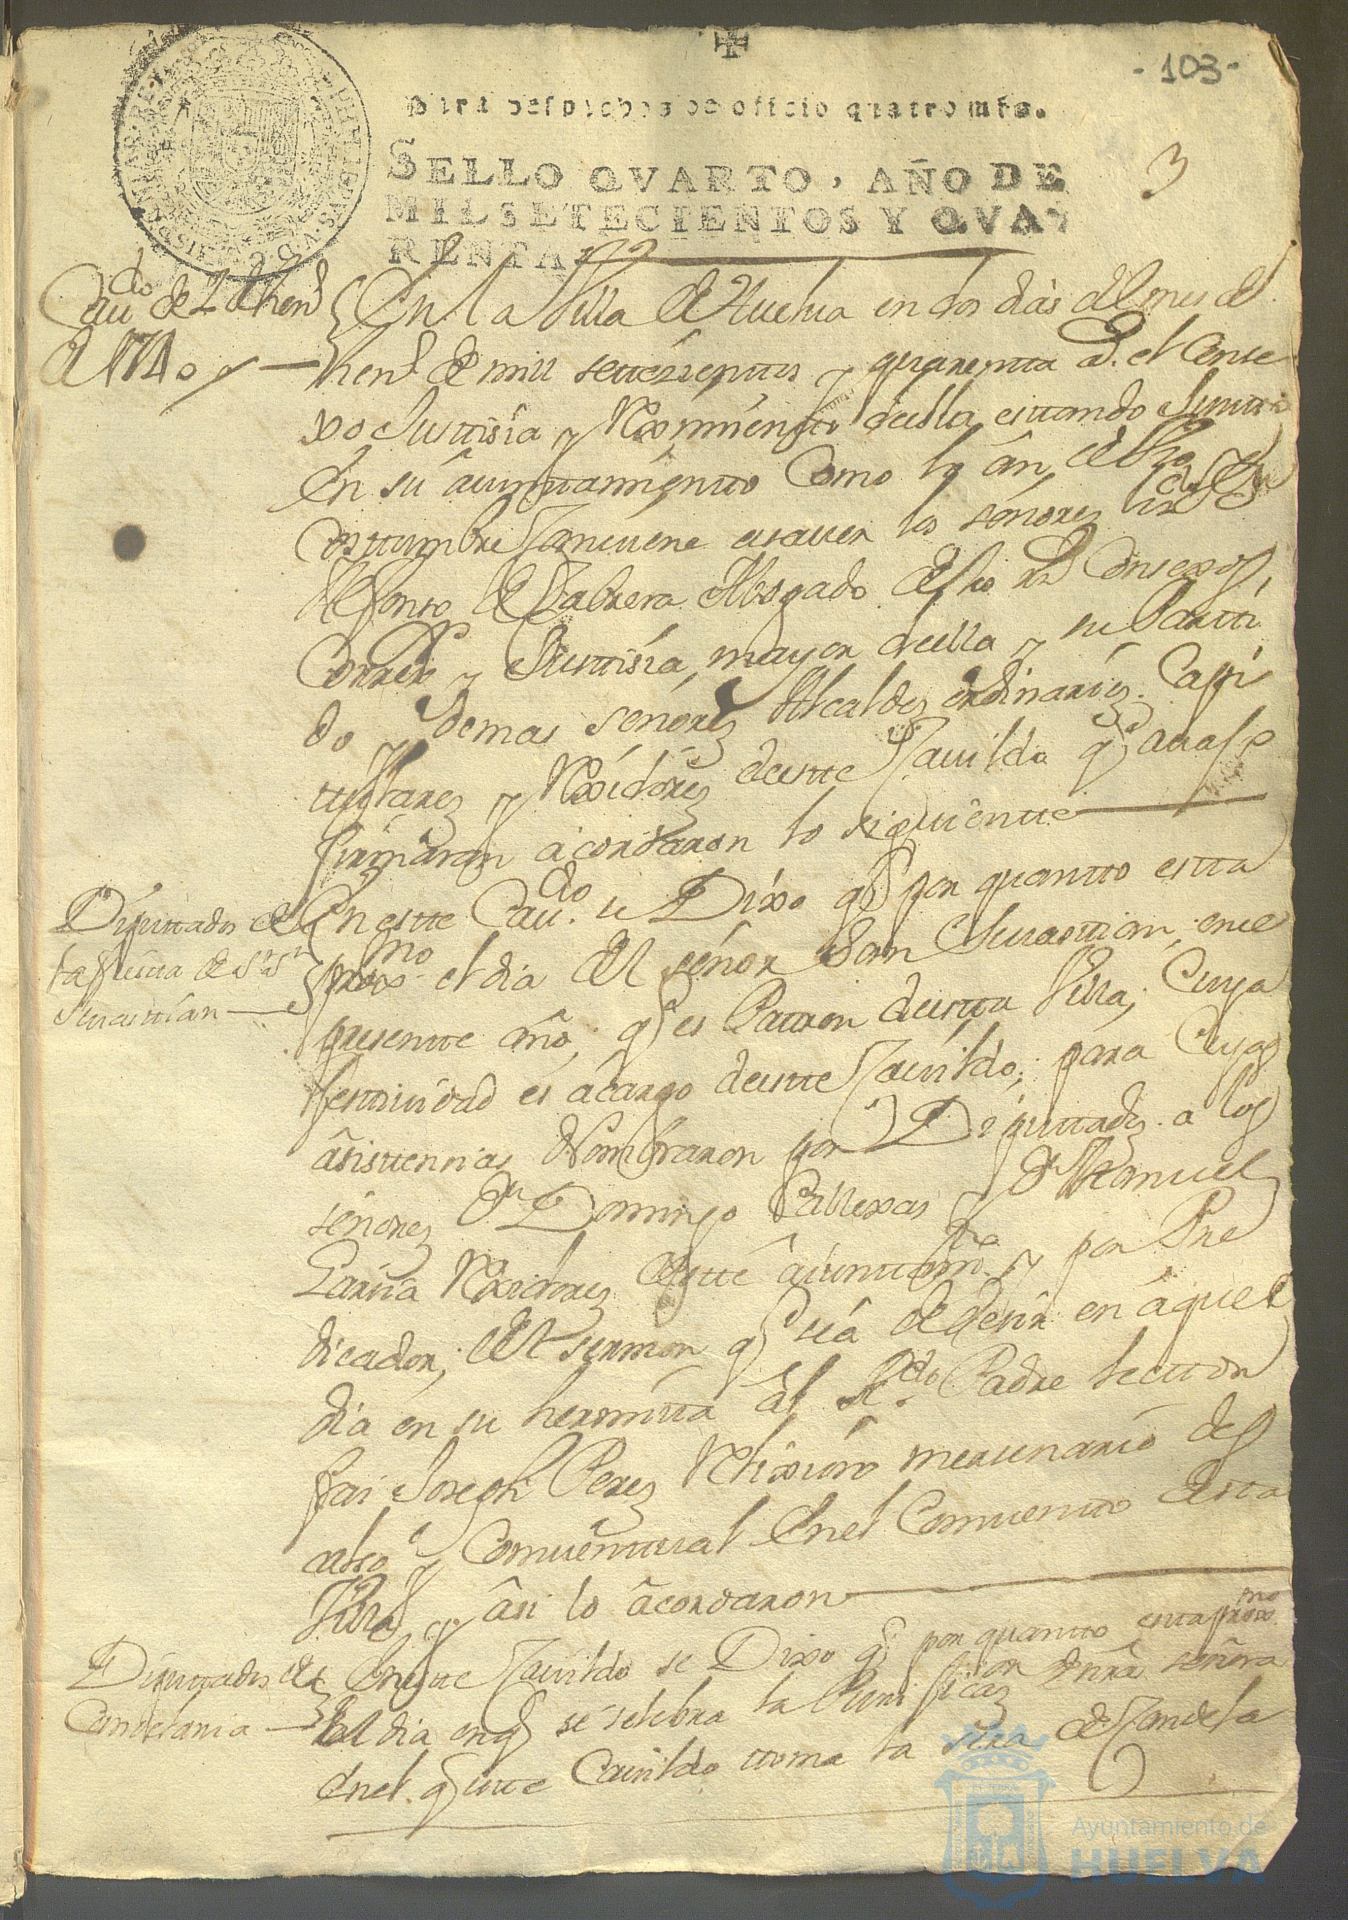 -103-
Para despachos de oficio quatro mrs.
3
SELLO QVARTO, AÑO DE
MIL SETECIENTOS Y QVA
RENTA
Caudo de 2 de hen.o
de 1740
En la Villa de Huelua en dos dias del mes de
hen.o de mill settesientos y quarenta a.s el Conse
xo Justisia y Reximiento de ella estando Juntos
en su aiuntamiento Como lo an de Vzo
costumbre Combiene asauer los señores
Alfonso de Cabrera Abogado de los R.s Consexos,
Correx.or y Justisia mayor de ella y su Parti
do y demas señores Alcaldes ordinarios Capi
tulares y Rexidores deste Cauildo q.e auajo
firmaran acordaron lo siguiente
Diputtados de
la fiesta de S.r S.n
Seuastian
En este Cau.do se Dixo q.e por quanto esta
prox.mo el dia del señor San Seuastian, en el
presente año, q.e es Patron de esta Villa, Cuya
festtiuidad es a cargo deste Cauildo, para Cuyas
asistencias Nombraron por Diputtados a los
señores D.n Domingo Villexas y D.n Manuel
Garsia Rexidores deste aiuntam.to y por Pre
dicador, del sermon q.e se a de desir en aquel
dia en su hermita al R.do Padre lector
frai Joseph Perez Relixioso mersenario des
calso y Comuentual en el Comuento de esta
Villa y asi lo acordaron
Diputtados de
Candelaria
En este Cauildo se Dixo q.e por quanto esta prox.mo
el dia en q.e se selebra la Purificaz.on de nra señora
en el q.e este Cauildo toma la sera de Candela
Ayuntamiento de
HUELVA